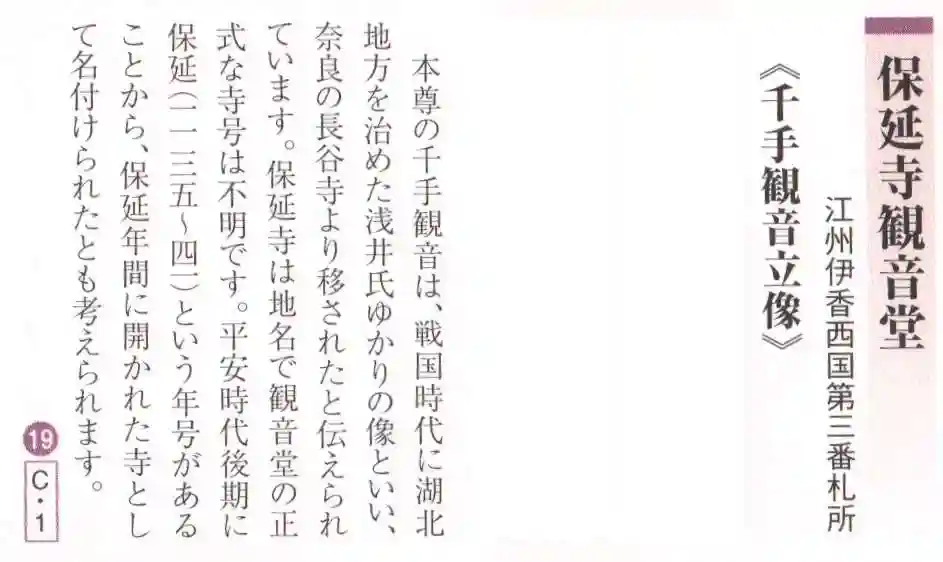 保延寺観音堂
江州伊香西国第三番札所
《千手観音立像》
本尊の千手観音は、戦国時代に湖北
地方を治めた浅井氏ゆかりの像といい、
奈良の長谷寺より移されたと伝えられ
ています。保延寺は地名で観音堂の正
式な寺号は不明です。平安時代後期に
保延(一一三五〜四一)という年号がある
ことから、保延年間に開かれた寺とし
て名付けられたとも考えられます。
19
C・1